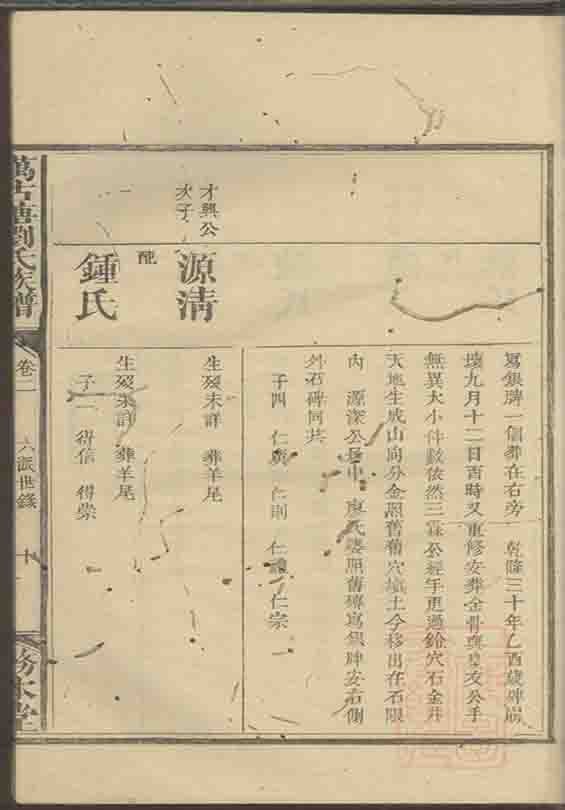 寫銀牌一個葬在右旁　乾隆三十年乙酉歲碑崩
壞九月十二日酉時又重修安葬金骨與皇友公手
無異大小件數依然三霖公經手更過鈴穴石金井
天地生成山向分金照舊舊穴墳土今移出在石限
內　源深公居中　廖氏婆照舊磚寫銀牌安右側
外石碑同共
子四　仁　仁則　仁　仁宗
才興公
次子
源清
生歿未詳　葬羊尾
一
配
鍾氏
生歿未詳　葬羊尾
子二　得信　得崇
萬古塘劉氏族譜
卷二
六派世錄
十
務本堂